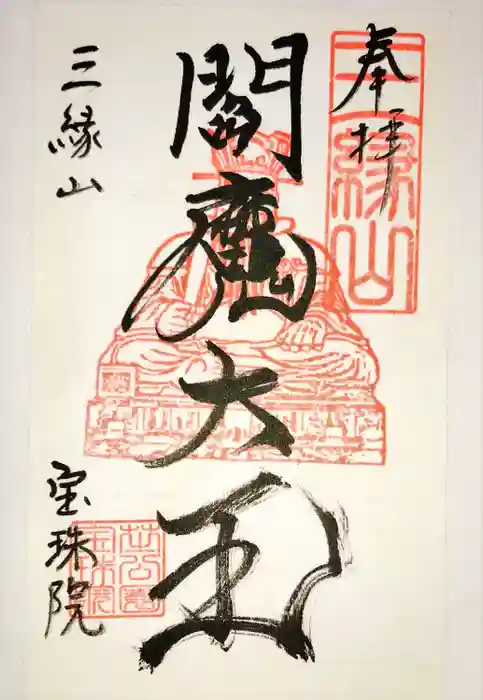 奉拝
三縁山
閻魔大王
三縁山
宝珠院